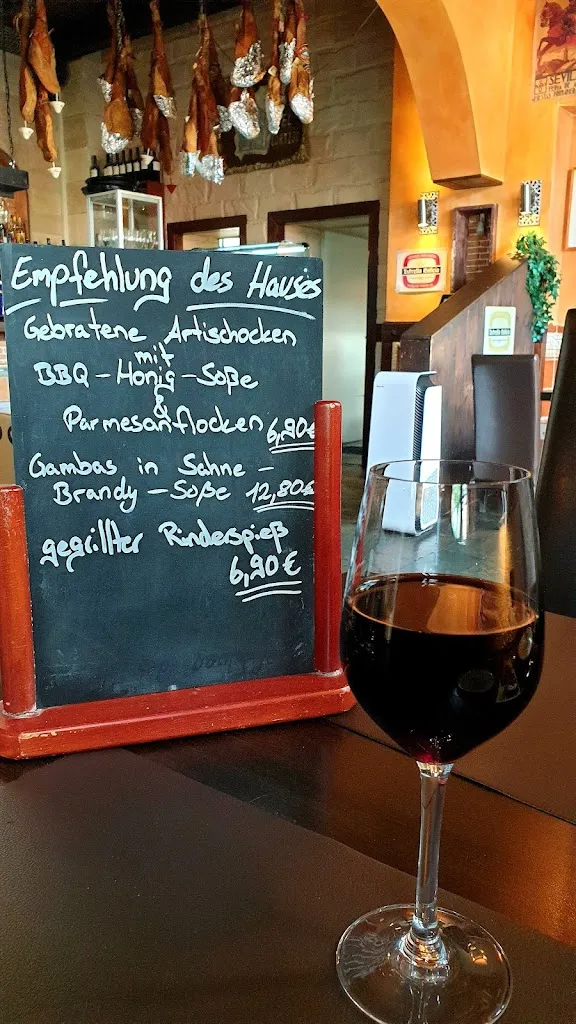 SEVILLA
Empfehlung des Hauses
Gebratene Artischocken
mit
BBQ-Honig-Soße
&
Parmesanflocken 6,90€
Gambas in Sahne-
Brandy-Soße 12,80€
gegrillter Rinderspieß
6,90€